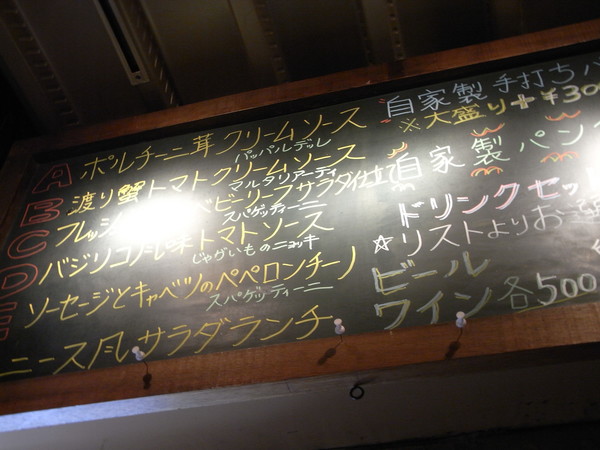 A ポルチーニ茸クリームソース
パッパルデッレ
B 渡り蟹トマトクリームソース
マルタリアーティ
C フレッシュ ベビリーフサラダ仕立て
スパゲッティーニ
D バジリコ風味トマトソース
じゃがいものニョッキ
E ソーセージとキャベツのペペロンチーノ
スパゲッティーニ
F ニース風サラダランチ
自家製手打ちパ
※大盛り+¥30
自家製パン
ドリンクセッ
☆リストよりお
ビール
ワイン 各500